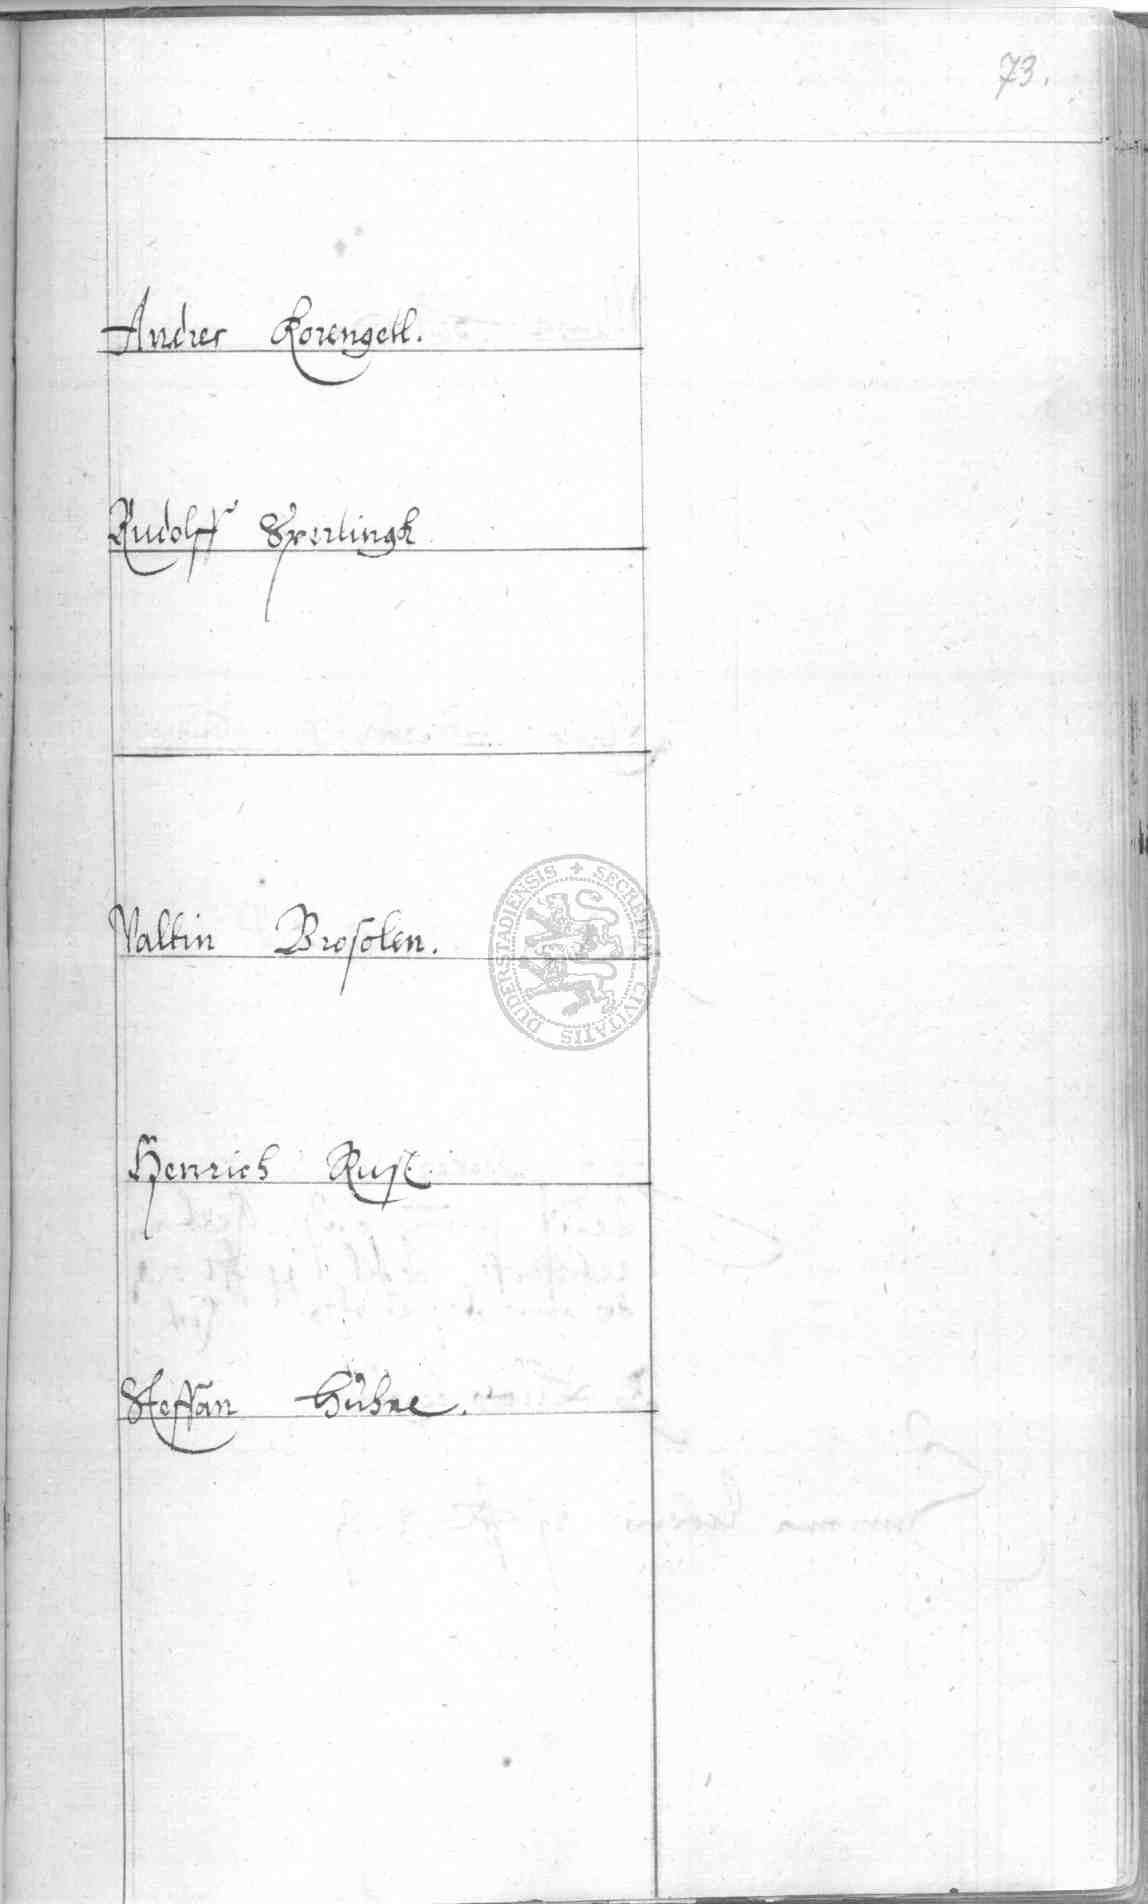 73.
Andres Korengell.
Rudolff Sperlingk
Valtin Brosolen.
SECRETUM CIVITATIS DUDERSTADIENSIS
Henrich Rust.
Steffan Hühne.